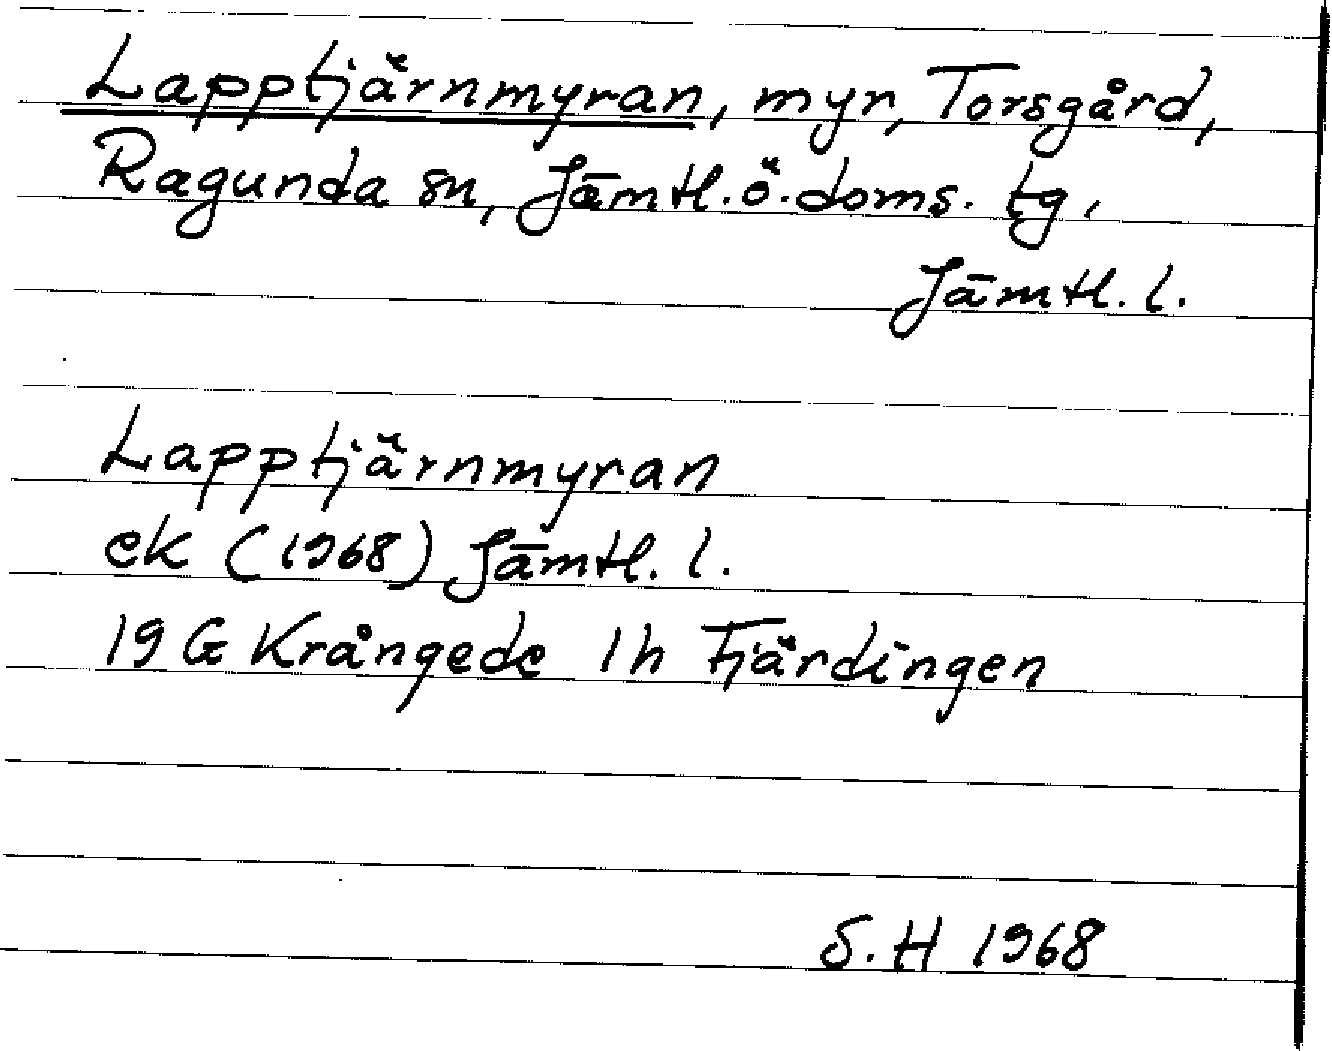 Lapptjärnmyran, myr, Torsgård,
Ragunda sn, Jämtl.ö.doms. tg,
Jämtl. l.
Lapptjärnmyran
ek (1968) Jämtl. l.
19 G Krångede 1h Fjärdingen
S.H 1968